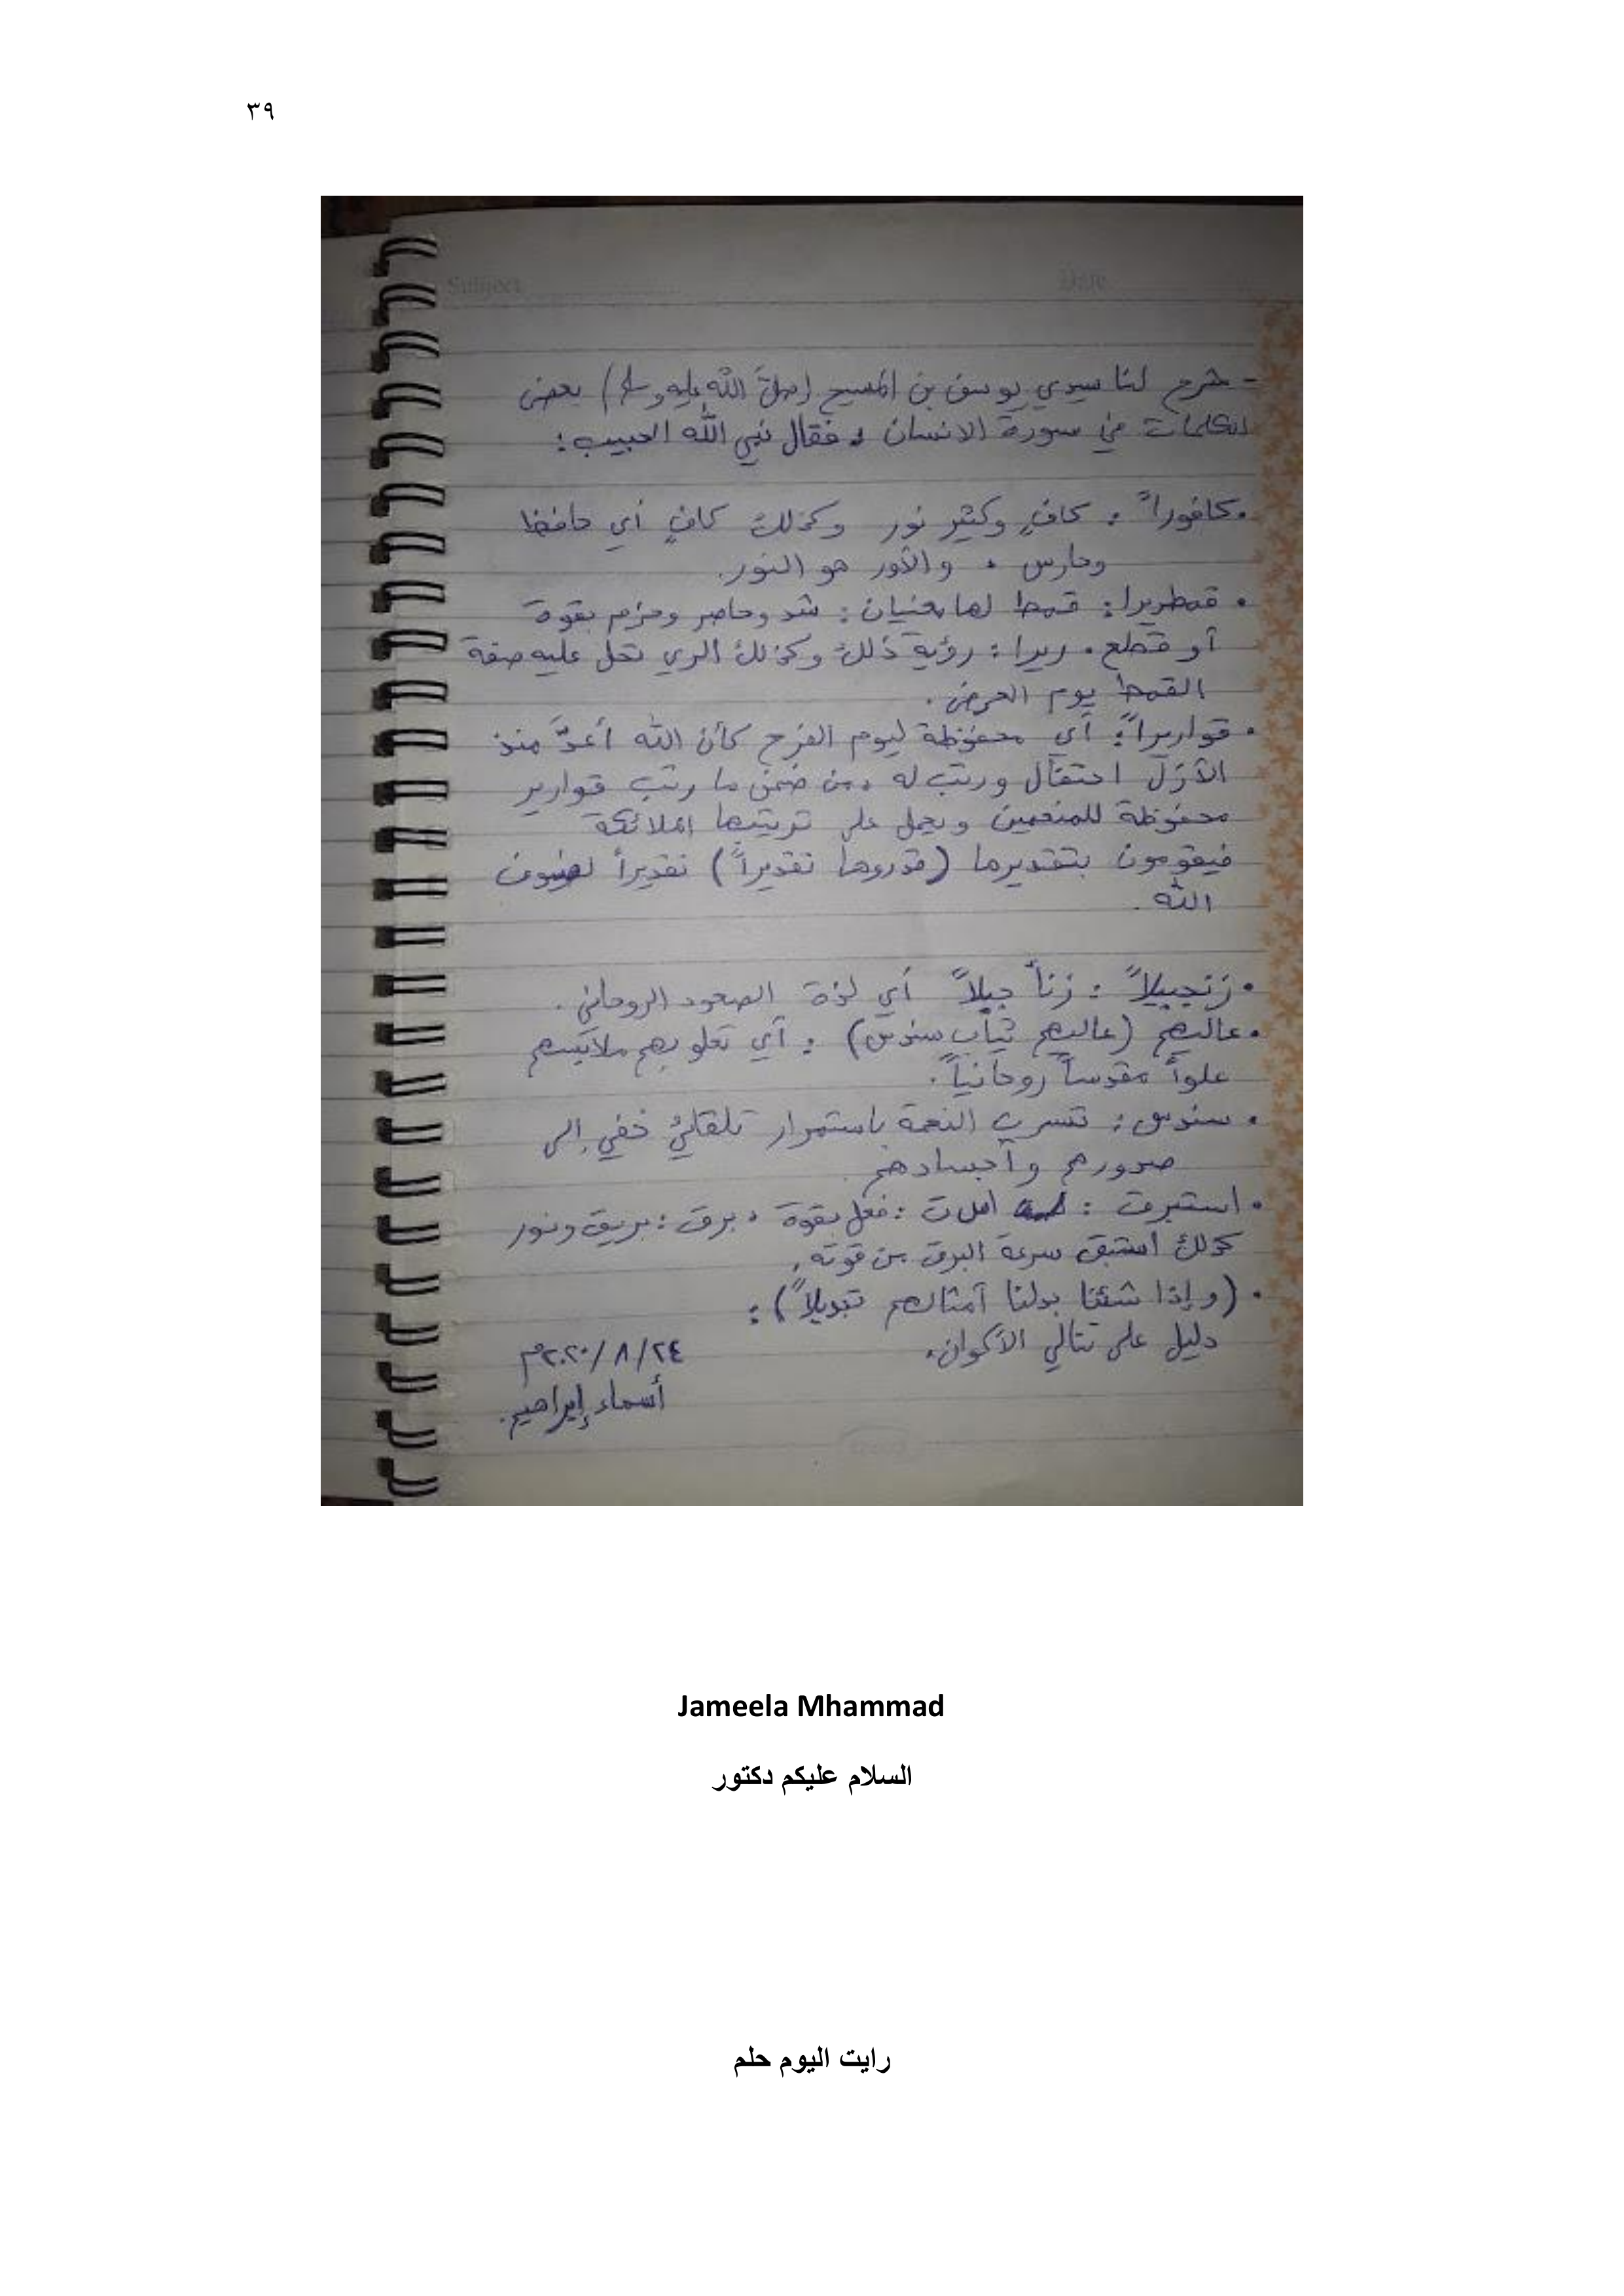 ٣٩
Subject
Date
- شرح لنا سيدي يوسف بن المسيح (صلى الله عليه وسلم) بعض
الكلمات في سورة الانسان ، فقال نبي الله الحبيب :
• كافوراً : كافٍ وكثير نور وكذلك كافٍ أي حافظ
وحارس ، والأور هو النور .
• قمطريرا : قمط لها معنيان : شد وحاصر وحزم بقوة
أو قطع . ريرا : رؤية ذلك وكذلك الري تحل عليه صفة
القمط يوم العرض .
• قواريراً : أي محفوظة ليوم الفرح كأن الله أعدَّ منذ
الأزل احتفال ورتب له ، من ضمن ما رتب قوارير
محفوظة للمنعمين ويعمل على ترتيبها الملائكة
فيقومون بتقديرها (قدروها تقديراً) تقديراً لضيوف
الله .
• زنجبيلاً : زنأ جبلاً أي لذة الصعود الروحاني .
• عاليهم (عاليهم ثياب سندس) : أي تعلو بهم ملابسهم
علواً مقدساً روحانياً .
• سندس : تسرب النعمة باستمرار تلقائي خفي إلى
صدورهم وأجسادهم .
• استبرق : است : فعل بقوة ، برق : بريق ونور
كذلك استبق سرعة البرق من قوته .
• (وإذا شئنا بدلنا أمثالهم تبديلاً) :
دليل على تتالي الأكوان .
٢٤/٨/٢٠٢٠م
أسماء إبراهيم .
Jameela Mhammad
السلام عليكم دكتور
رايت اليوم حلم